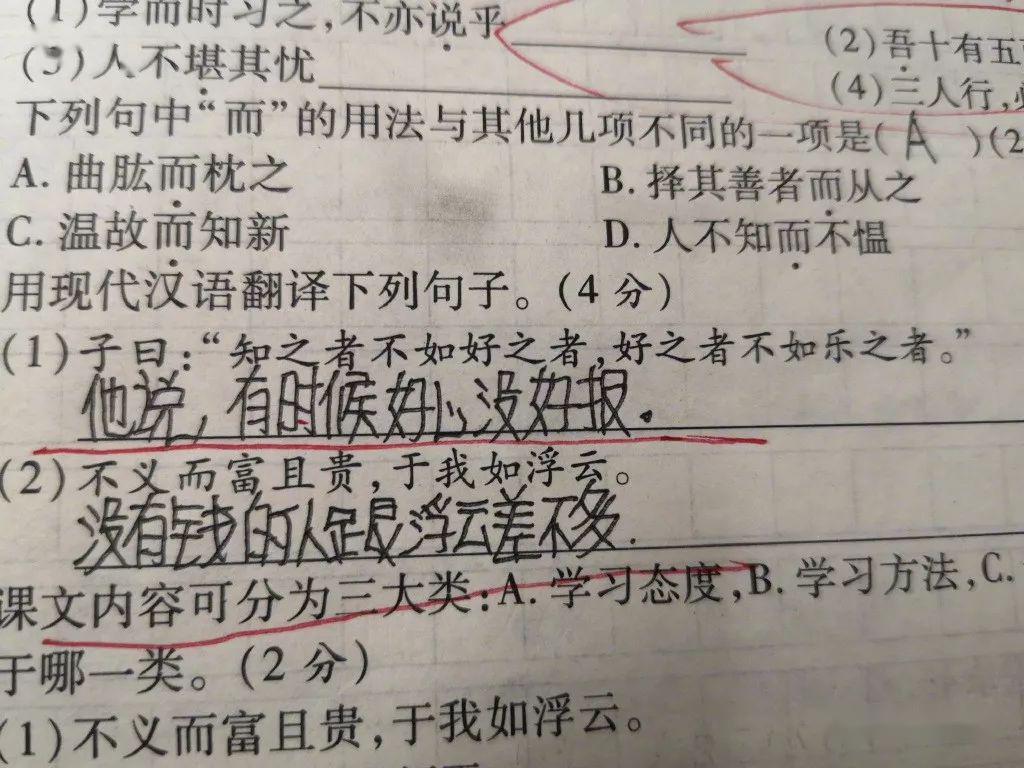 (1)学而时习之,不亦说乎
(2)吾十有五
(3)人不堪其忧
(4)三人行,
下列句中“而”的用法与其他几项不同的一项是(A)(2
A. 曲肱而枕之
B. 择其善者而从之
C. 温故而知新
D. 人不知而不愠
用现代汉语翻译下列句子。(4分)
(1)子曰:“知之者不如好之者,好之者不如乐之者。”
他说,有时候好心没好报.
(2)不义而富且贵,于我如浮云。
没有钱的人跟浮云差不多.
课文内容可分为三大类:A. 学习态度,B. 学习方法,C.
于哪一类。(2分)
(1)不义而富且贵,于我如浮云。